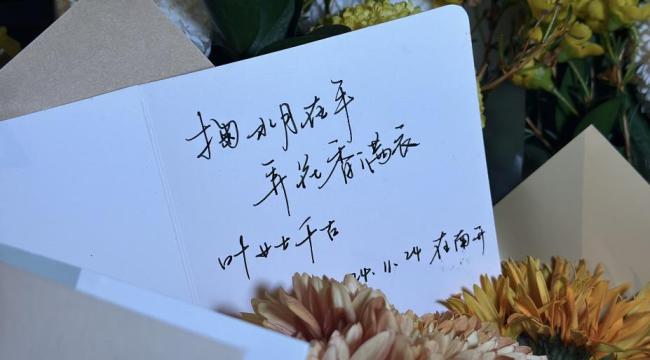 掬水月在手
弄花香满衣
叶女士千古
24.11.24 在南开